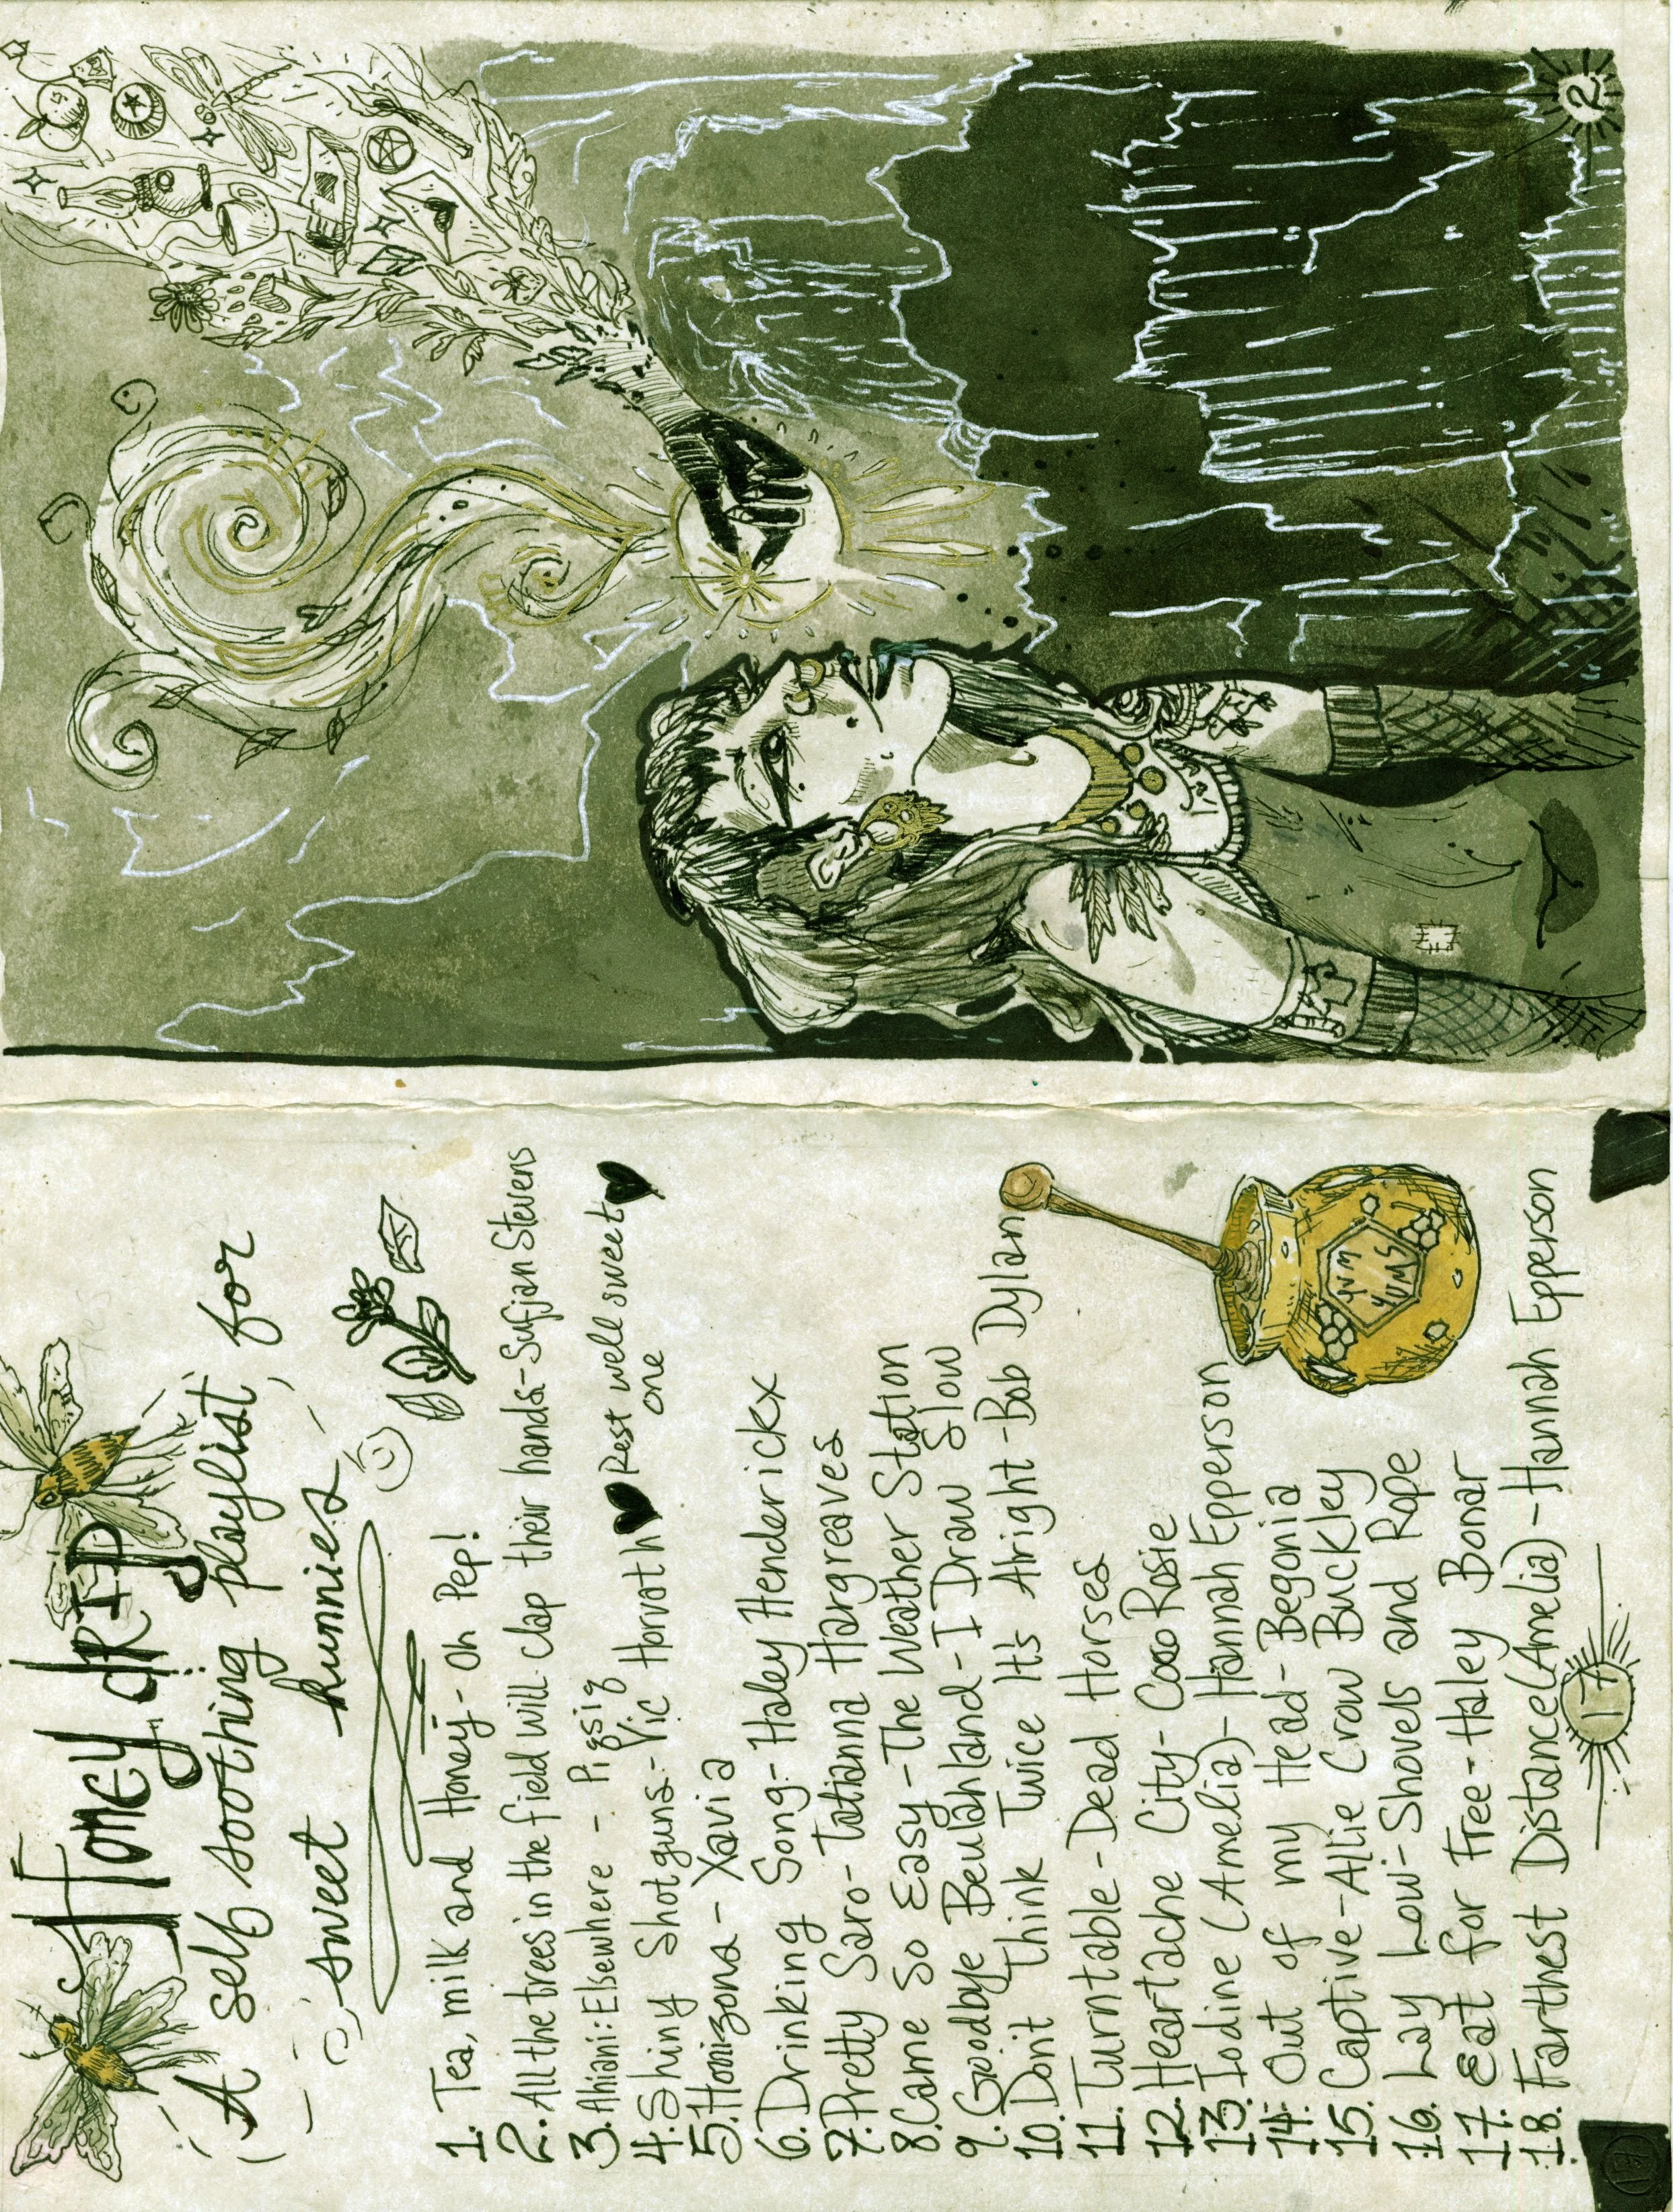 Honey drip
(A self soothing playlist, for
sweet hunnies
1. Tea, milk and Honey - Oh Pep!
2. All the trees in the field will clap their hands - Sufjan Stevens
3. Ahiani: Elsewhere - Pigsig
4. Shiny Shotguns - Vic Horvath ♥ Rest well sweet ♥
one
5. Homizona - Xavia
6. Drinking Song - Haley Henderickx
7. Pretty Saro - Tatianna Hargreaves
8. Came So Easy - The Weather Station
9. Goodbye Beulahland - I Draw Slow
10. Dont think Twice It's Alright - Bob Dylan
11. Turntable - Dead Horses
12. Heartache City - Coco Rosie
13. Iodine (Amelia) - Hannah Epperson
14. Out of my Head - Begonia
15. Captive - Allie Crow Buckley
16. Lay Low - Shovels and Rope
17. Eat for Free - Haley Bonar
18. Farthest Distance (Amelia) - Hannah Epperson
YUM
YUMS
17
2